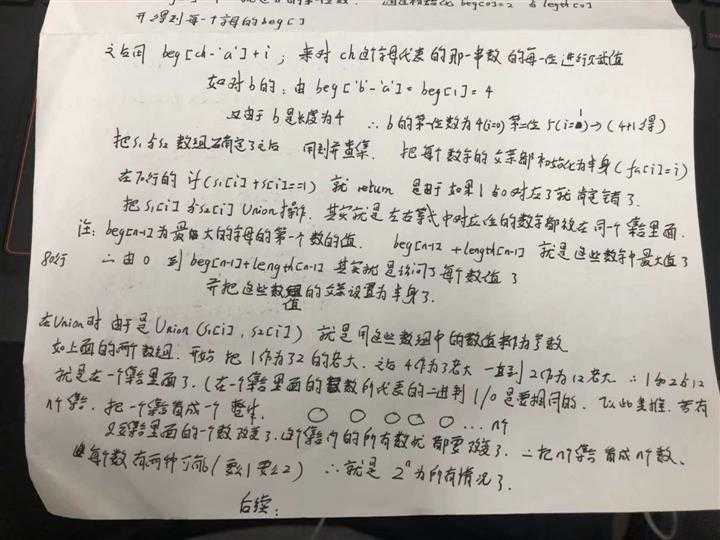 通过初始化 beg[0]=2 与 length[0]
并得到每一个字母的beg[]
之后用 beg[ch-'a']+i ; 来对ch这个字母代表的那一串数的每一位进行赋值
如对b的:由 beg['b'-'a']=beg[1]=4
又由于b是长度为4 ∴b的第一位数为4(i=0)第二位5(i=1)→(4+1得)
把s1与s2数组确定了之后 用到并查集. 把每个数字的父亲都初始化为本身(fa[i]=i)
在70行的 if(s1[i]+s2[i]==1) 就 return 是由于如果1与0对应了就肯定错了.
把s1[i]与s2[i] Union操作. 其实就是左右等式中对应位的数字都放在同一个集合里面.
注: beg[n-1]为最大的字母的第一个数的值. beg[n-1] +length[n-1] 就是这些数字中最大值了
80行 ∴由0到beg[n-1]+length[n-1] 其实就是访问了每个数值了
并把这些数值的父亲设置为本身了.
在Union时 由于是Union(s1[i], s2[i]) 就是用这些数组中的数值作为参数
如上面的两个数组. 开始把1作为32的老大. 之后4作为3老大 一直到2作为12老大 ∴1和2与12
就是在一个集合里面了.(在一个集合里面的数所代表的二进制1/0是要相同的. 以此类推. 若有
n个集合. 把一个集合看成一个整体. ○ ○ ○○ ○ ... n个
又集合里面的一个数改变了.这个集合内的所有数就都要改变了. ∴把n个集合看成n个数.
每个数有两种可能(要么1要么2) ∴就是2ⁿ为所有情况了.
后续: